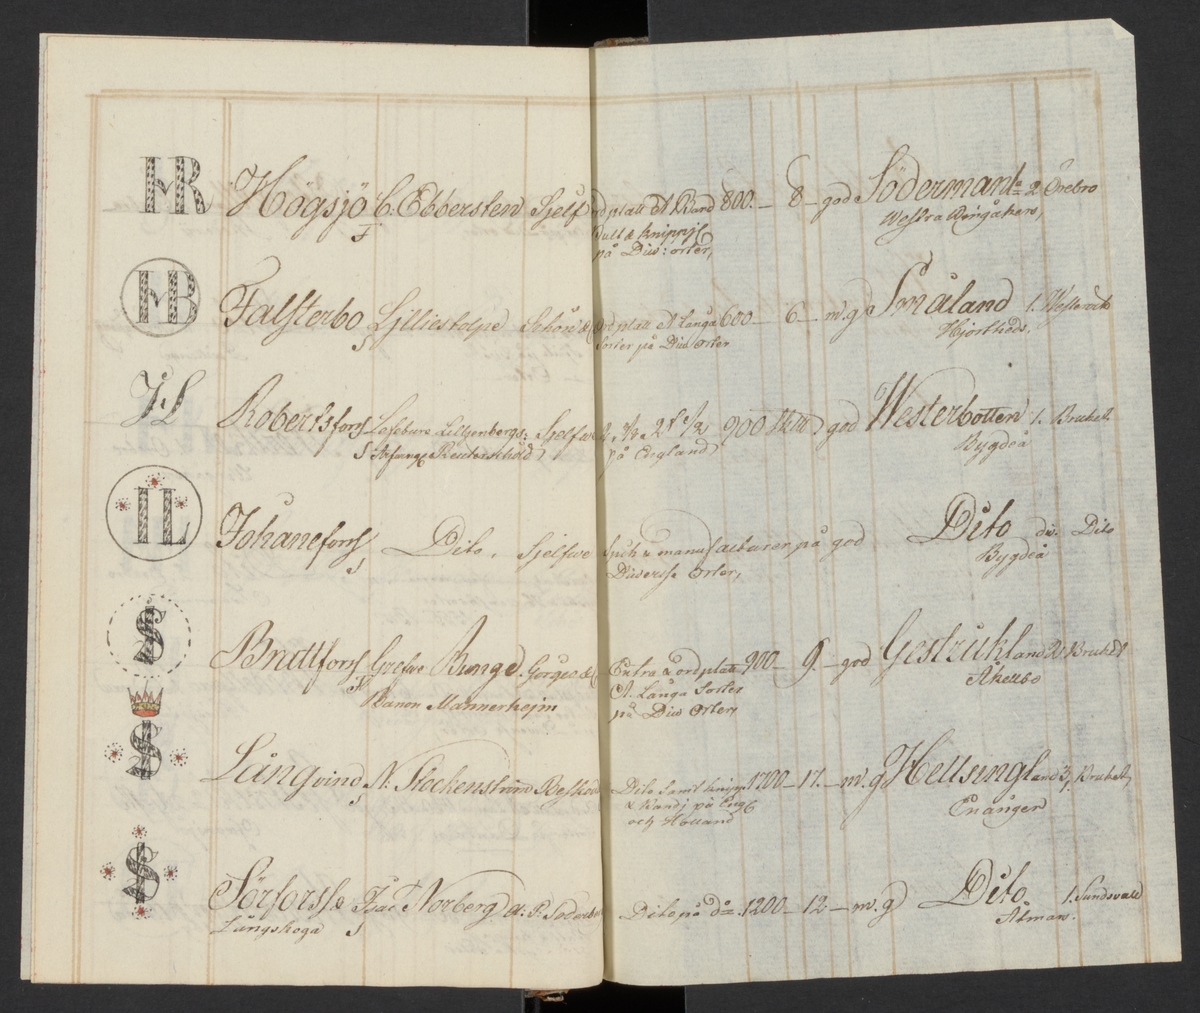 HR Högsjö C. Ebbersten Sjelf ordplatt St Band 800.— 8 — god Södermanl= 2. Örebro
F bult & knippj Westra Wingåker,
på Div: orter,
HB Falsterbo Lilliestolpe Schön &c ordplatt St långa 600— 6 — m.g Småland 1.
S sorter på Div orter Hjortheds.
JL Robertsfors Lefebure Lillgenbergs: Sjelfwe 900 god Westerbotten 1. Bruket
S Reuterskiöld på England Bygdeå
IL Johanefors Dito, Sjelfwe manufacturer på god Dito do. Dito
S Diwersse Orter, Bygdeå
S Brattfors Grefwe Runge. Görges &c Extra & ordplatt 900— 9.— god Gestrikland 2. Bruket
Baron Mannerheim St. Långa Sorter
på Div Orter,
S Långvind N. Stockenström Dito samt knipp 1700— 17.— m.g Hellsingland 3. Bruket,
S & Bandj på Eng Enånger
och Holland
S Sörforsse Isac Norberg Dito på do 1200— 12— m.g Dito. 1. Sundsvall
Långskoga S Attmar.